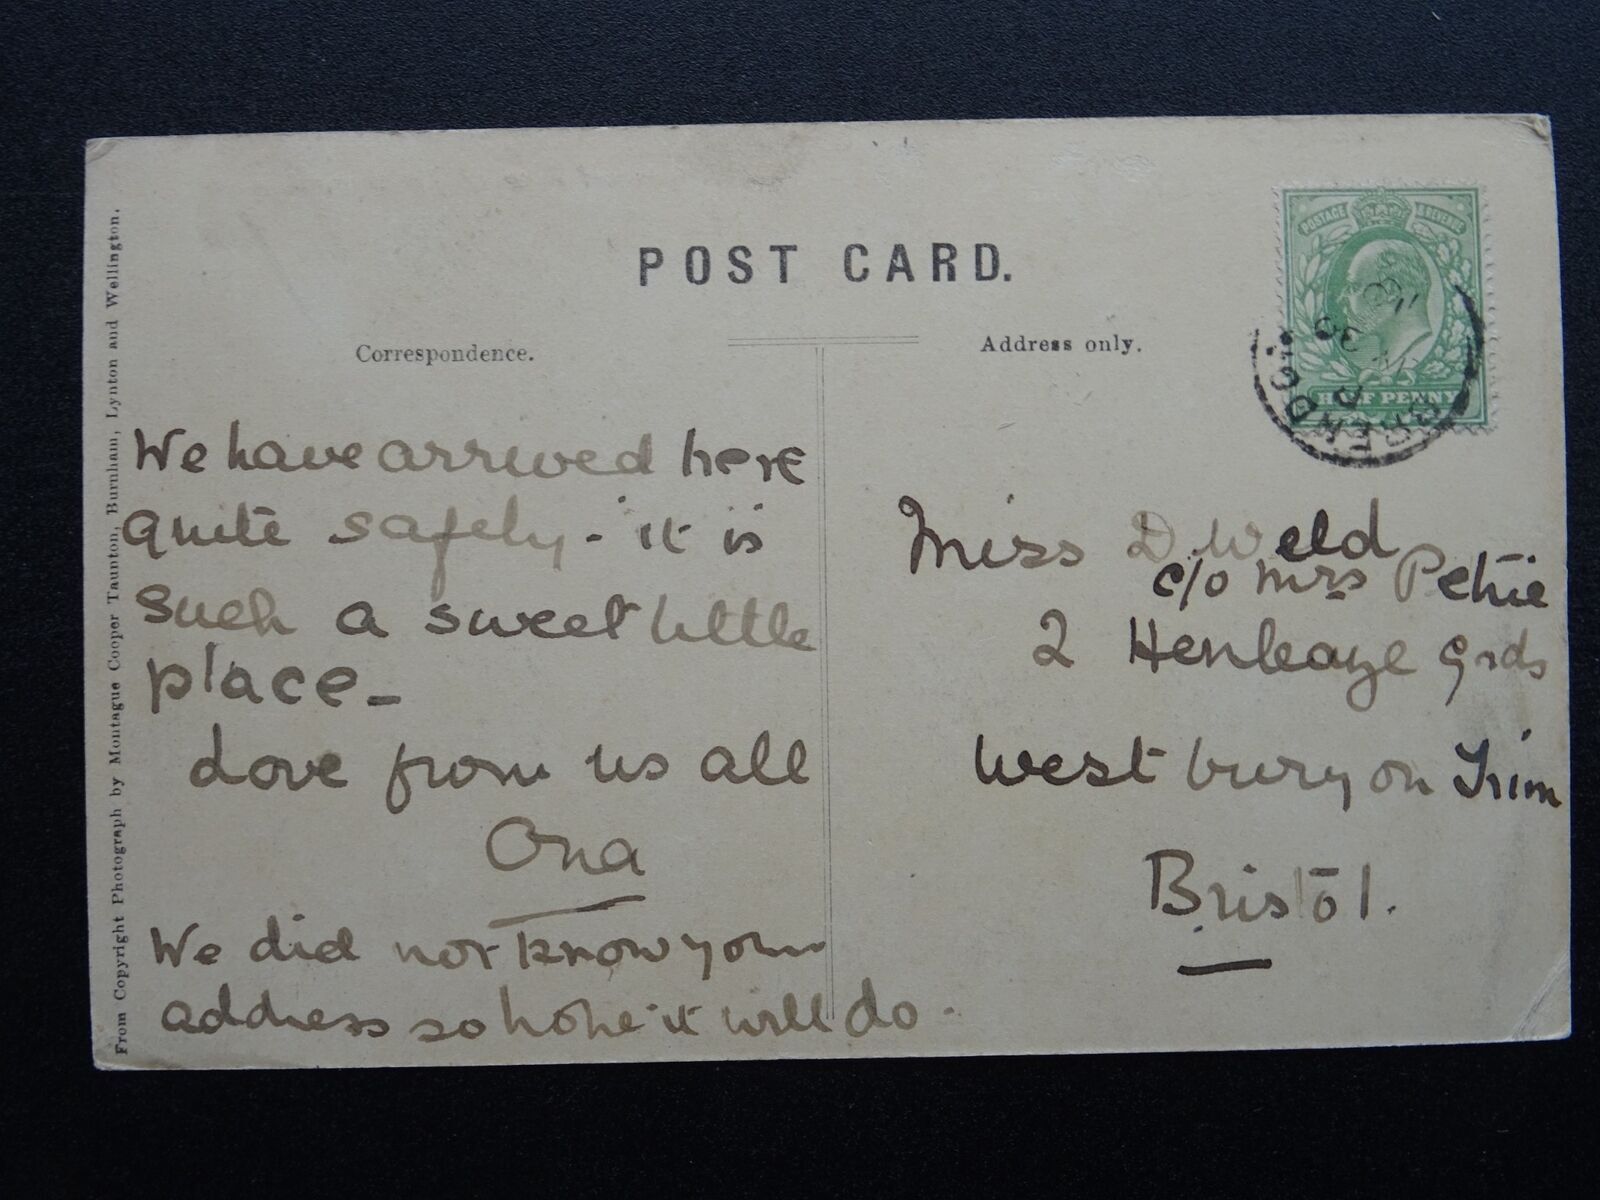 POST CARD.
Correspondence.
Address only.
POSTAGE & REVENUE
HALF PENNY
BRENDON
From Copyright Photograph by Montague Cooper Taunton, Burnham, Lynton and Wellington.
We have arrived here
quite safely - it is
such a sweet little
place -
Love from us all
Ona
We did not know your
address so hope it will do -
Miss D Weld
c/o Mrs Petrie
2 Henleaze Grds
Westbury on Trim
Bristol.